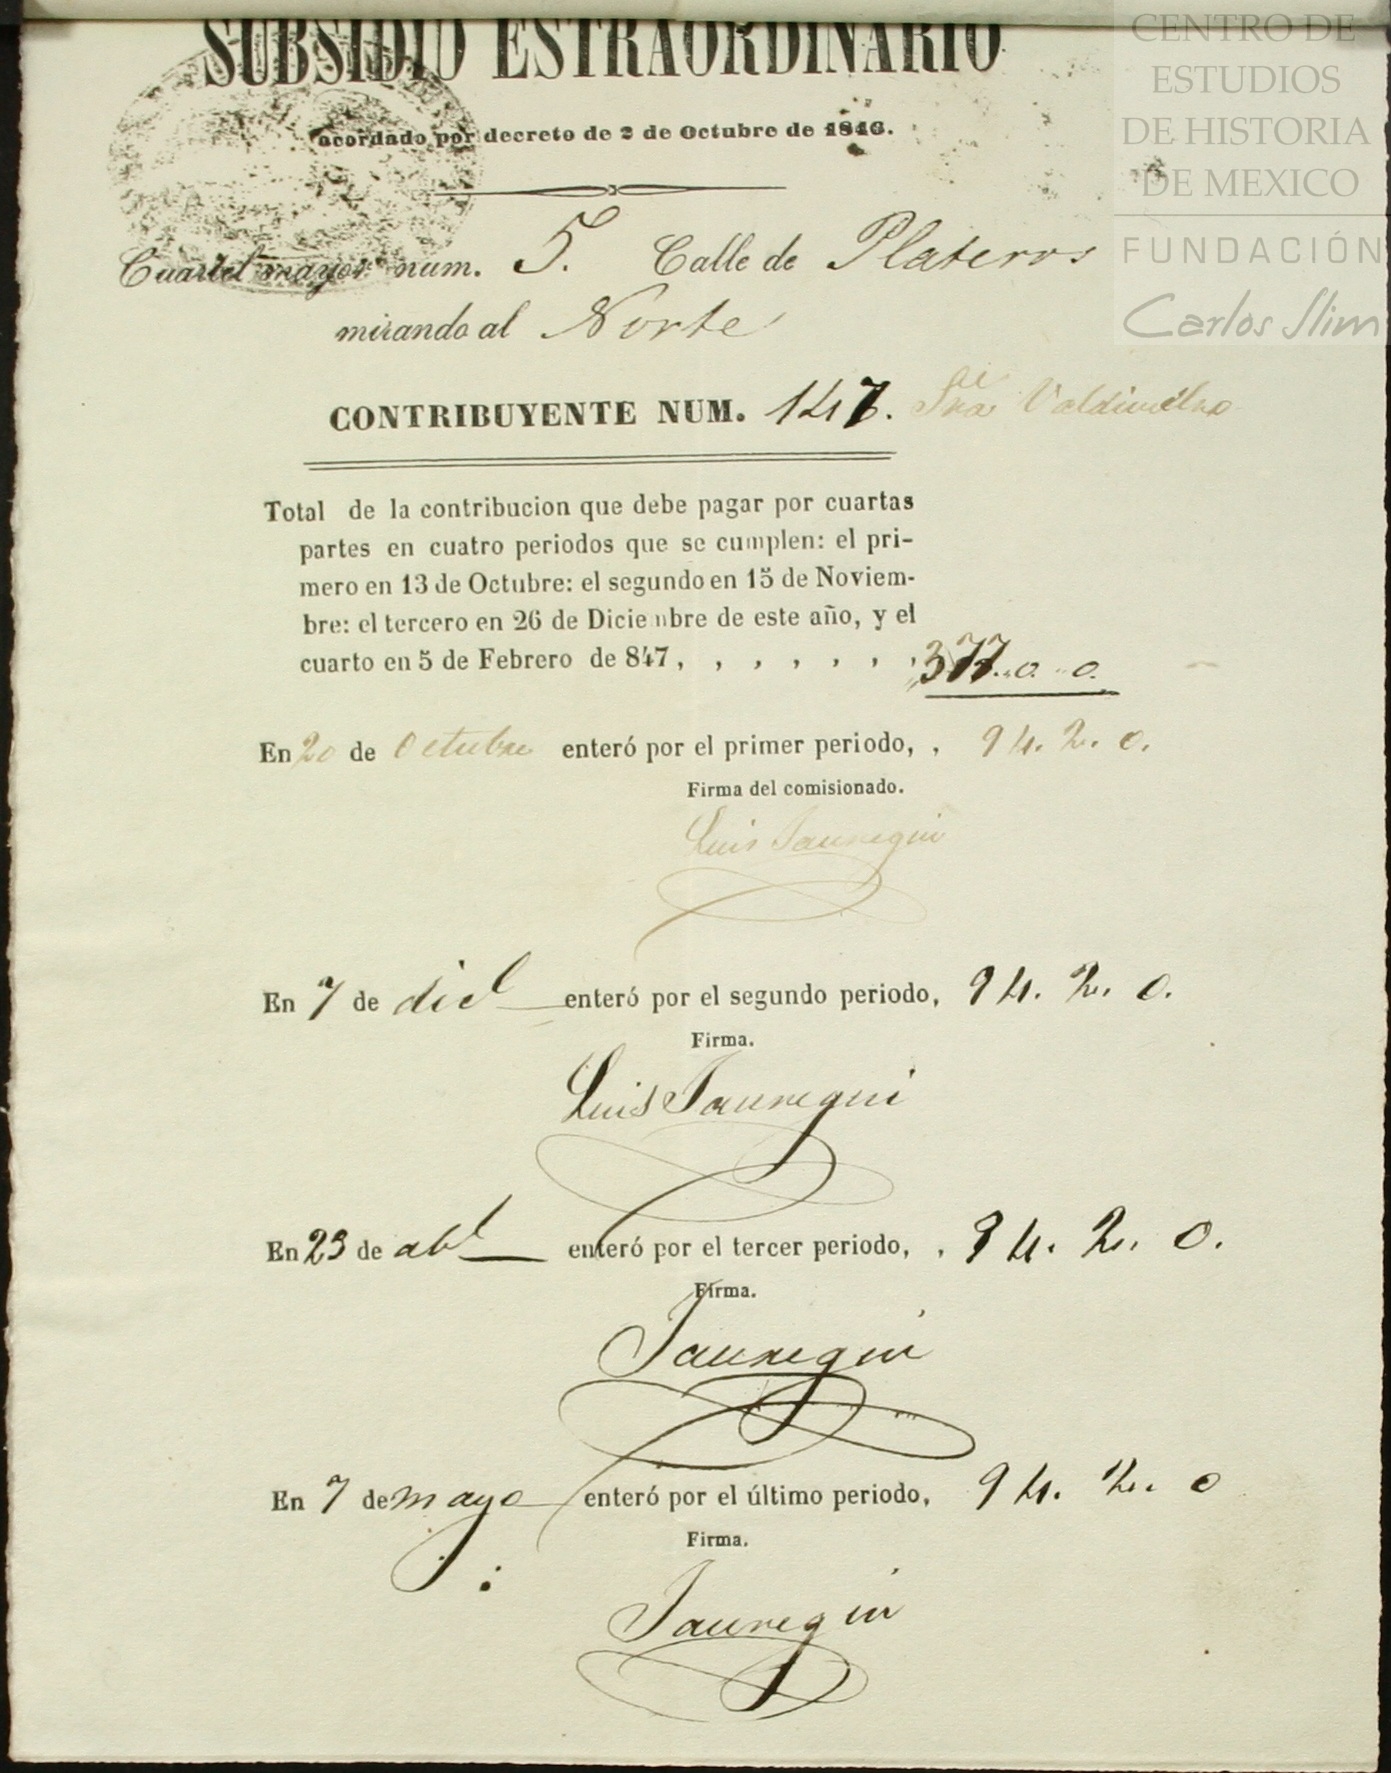 SUBSIDIO ESTRAORDINARIO
acordado por decreto de 2 de Octubre de 1846.
Cuartel mayor num. 5. Calle de Plateros
mirando al Norte
CONTRIBUYENTE NUM. 147. Sra Valdivielso
Total de la contribucion que debe pagar por cuartas
partes en cuatro periodos que se cumplen: el pri-
mero en 13 de Octubre: el segundo en 15 de Noviem-
bre: el tercero en 26 de Diciembre de este año, y el
cuarto en 5 de Febrero de 847, , , , , , , 377. o. o.
En 20 de Octubre enteró por el primer periodo, , 94. 2. o.
Firma del comisionado.
Luis Jauregui
En 7 de dicl enteró por el segundo periodo, 94. 2. o.
Firma.
Luis Jauregui
En 23 de abl enteró por el tercer periodo, , 94. 2. o.
Firma.
Jauregui
En 7 de mayo enteró por el último periodo, 94. 2. o
Firma.
Jauregui
CENTRO DE
ESTUDIOS
DE HISTORIA
DE MEXICO
FUNDACIÓN
Carlos Slim